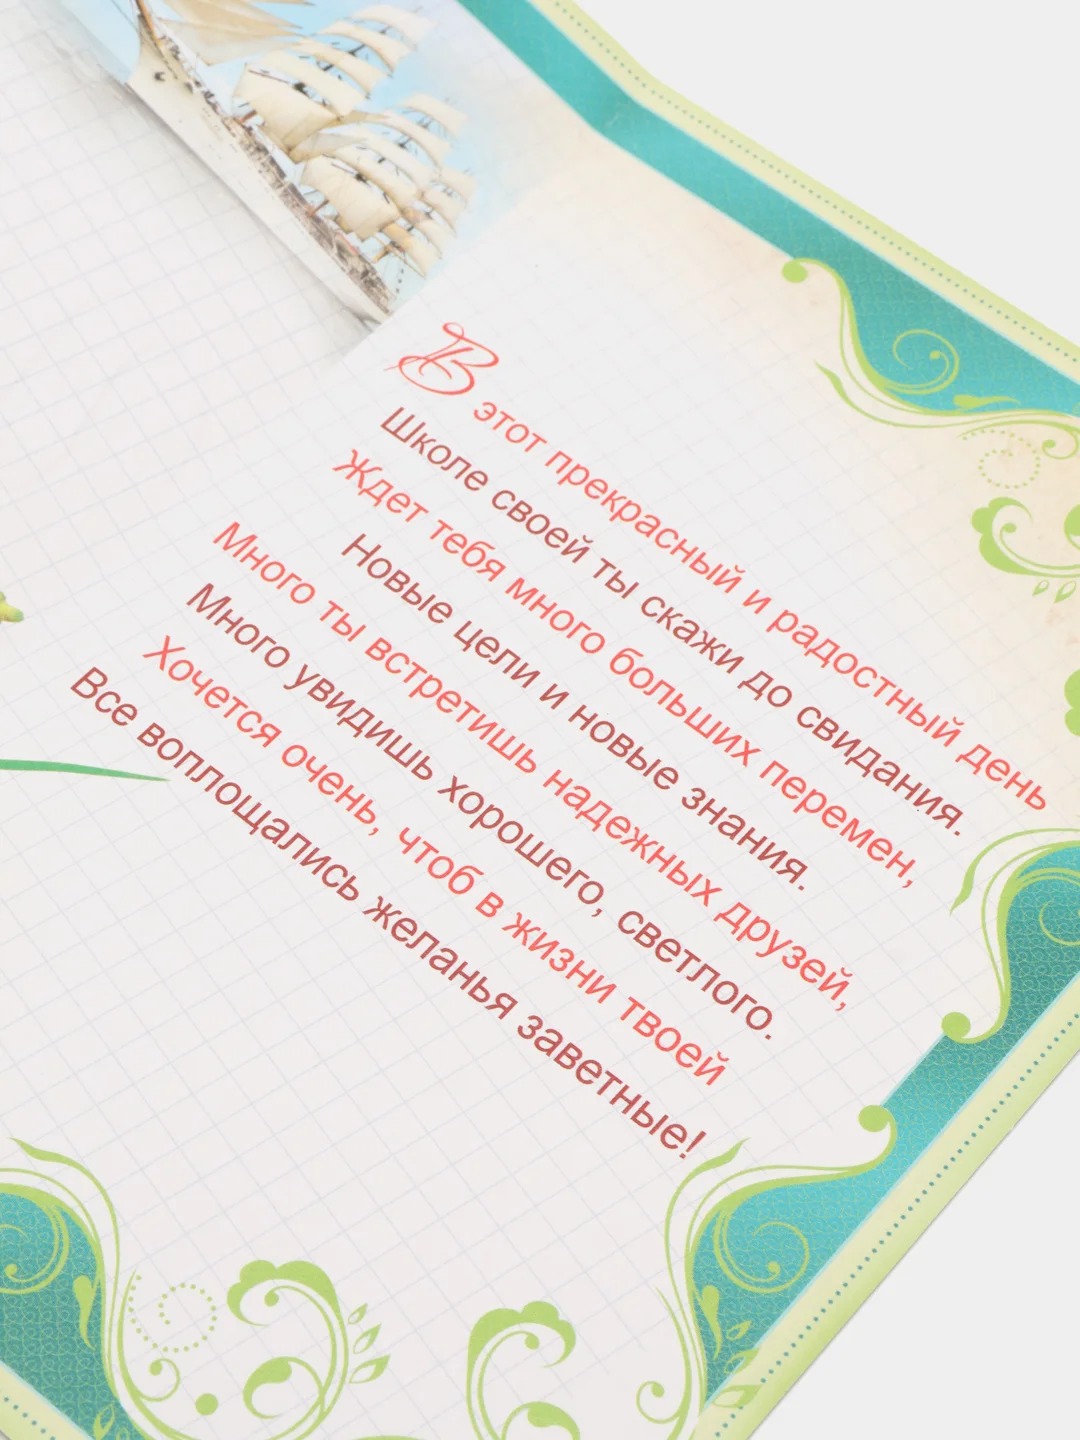 В этот прекрасный и радостный день
Школе своей ты скажи до свидания.
Ждет тебя много больших перемен,
Новые цели и новые знания.
Много ты встретишь надежных друзей,
Много увидишь хорошего, светлого.
Хочется очень, чтоб в жизни твоей
Все воплощались желанья заветные!